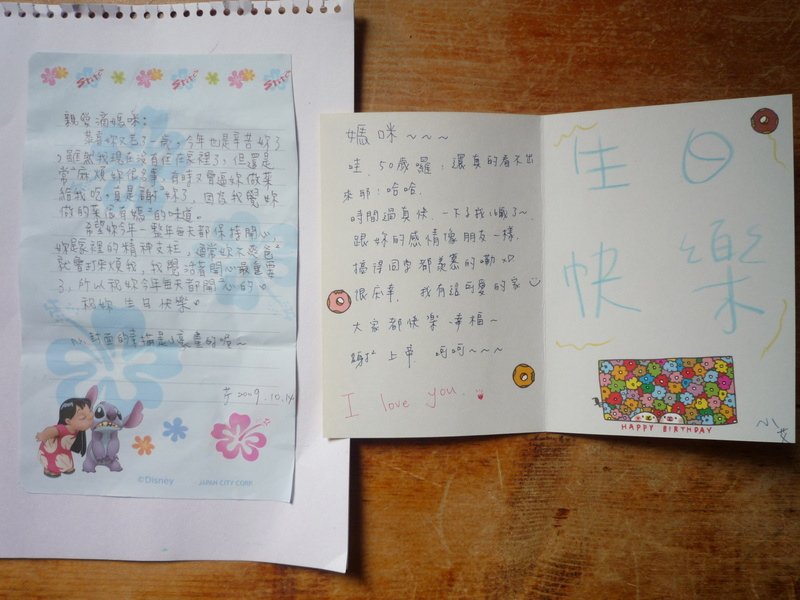 Stitch Stitch Stitch
親愛滴媽咪：
恭喜妳又老了一歲，今年也是辛苦妳了
，雖然我現在沒有住在家裡了，但還是
常麻煩妳很多事，有時又會逼妳做菜
給我吃，真是謝謝妳了，因為我覺妳
做的菜很有媽媽的味道。
希望妳今年一整年每天都保持開心，
妳是家裡的精神支柱，通常妳不爽爸爸
就會打來煩我，我覺活著開心最重要
了，所以祝妳今年每天都開心的。
祝妳 生日快樂。
封面的素描是
2009.10.14
©Disney
JAPAN CITY CORP.
媽咪~~~
哇，50歲囉，還真的看不出
來耶！哈哈，
時間過真快，一下子我18歲了~
跟妳的感情像朋友一樣，
搞得同學都羨慕的嘞 XD
很慶幸，我有這可愛的家
大家都快樂 幸福~
謝謝上帝 呵呵~~~
I love you.
生日
快樂
HAPPY BIRTHDAY
小艾